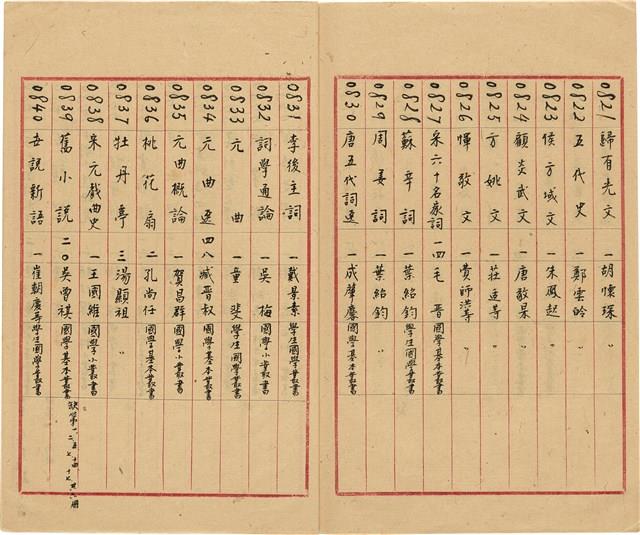 0821 歸有光文 一 胡懷琛 〃
0822 五代史 一 鄭雲齡 〃
0823 侯方域文 一 朱鳳起 〃
0824 顧炎武文 一 唐敬杲 〃
0825 方姚文 一 莊适等 〃
0826 惲敬文 一 費師洪等 〃
0827 宋六十名家詞 一四 毛晉 國學基本叢書
0828 蘇辛詞 一 葉紹鈞 學生國學叢書
0829 周姜詞 一 葉紹鈞 〃
0830 唐五代詞選 一 成肇麐 國學基本叢書
0831 李後主詞 一 戴景素 學生國學叢書
0832 詞學通論 一 吳梅 國學小叢書
0833 元曲 一 童斐 學生國學叢書
0834 元曲選 四八 臧晉叔 國學基本叢書
0835 元曲概論 一 賀昌群 國學小叢書
0836 桃花扇 二 孔尚任 國學基本叢書
0837 牡丹亭 三 湯顯祖 〃
0838 宋元戲曲史 一 王國維 國學小叢書
0839 舊小說 二〇 吳曾祺 國學基本叢書
0840 世說新語 一 崔朝慶等 學生國學叢書